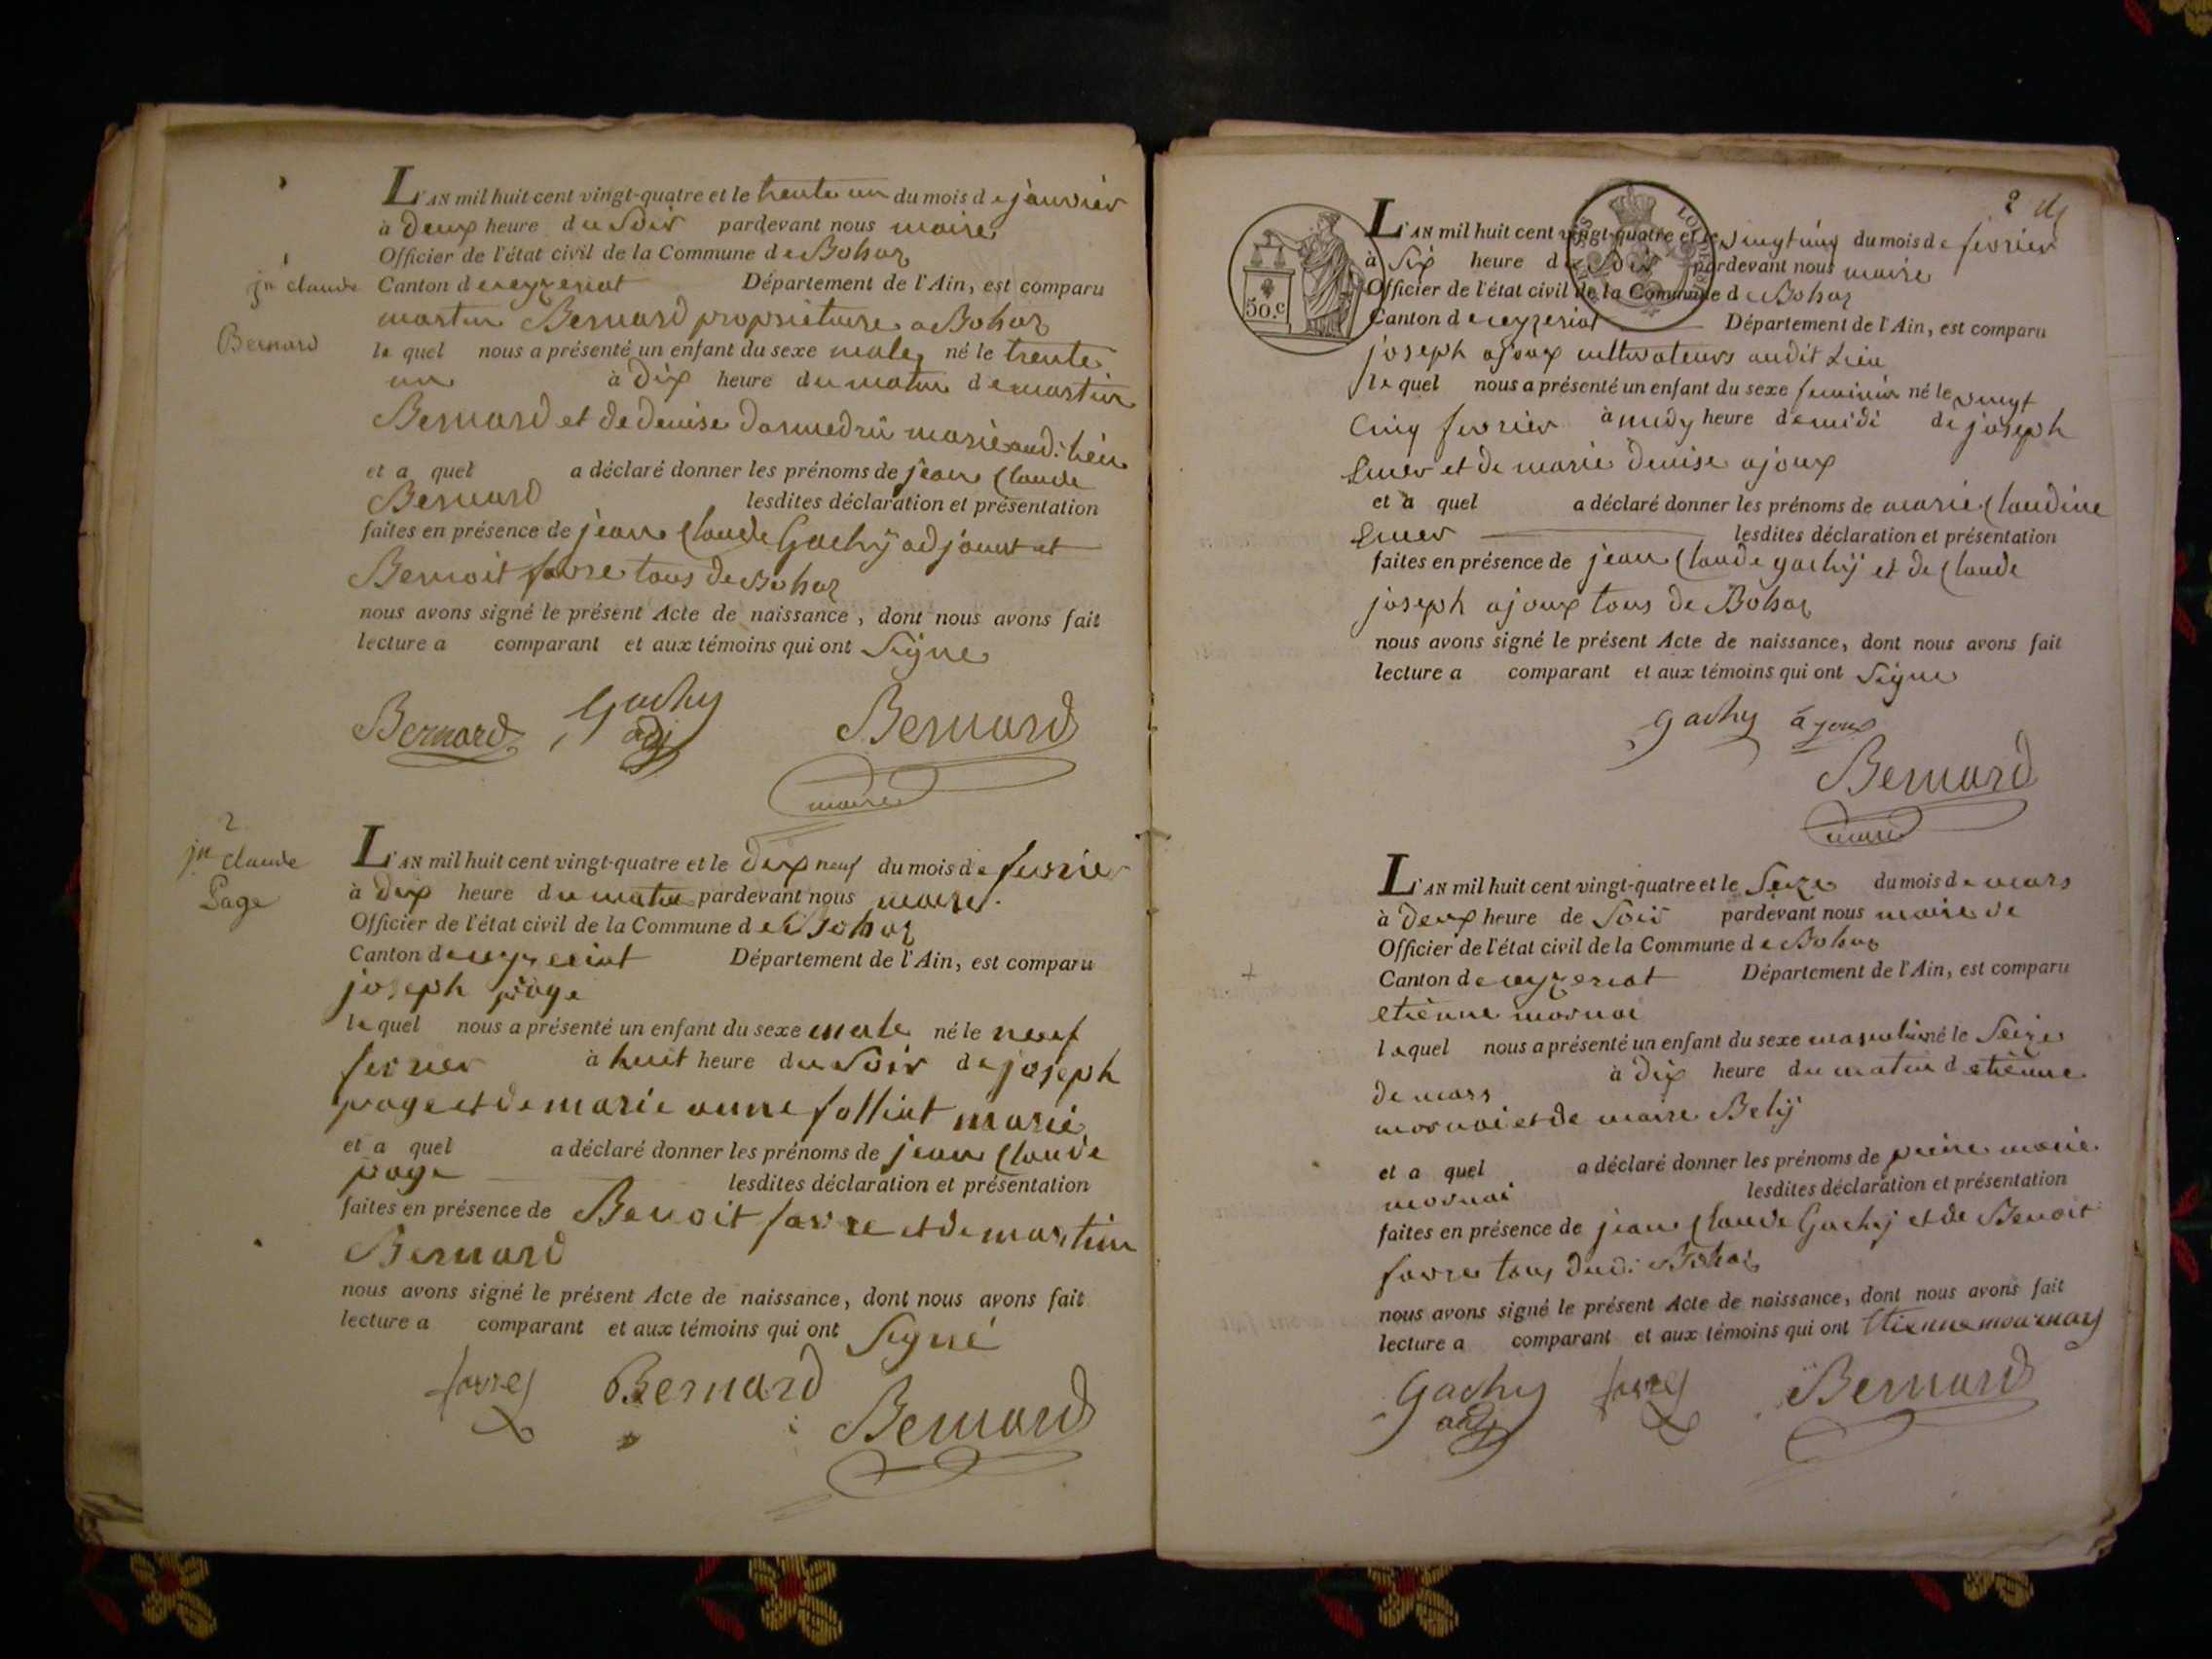 1
jn claude
Bernard
L'AN mil huit cent vingt-quatre et le trente un du mois de janvier
à deux heure du Soir pardevant nous maire
Officier de l'état civil de la Commune de Bohaz
Canton de ceyzeriat Département de l'Ain, est comparu
martin Bernard propriétaire a Bohaz
le quel nous a présenté un enfant du sexe male né le trente
un à dix heure du matin de martin
Bernard et de denise marié audi: lieu
et a quel a déclaré donner les prénoms de jean Claude
Bernard lesdites déclaration et présentation
faites en présence de jean Claude Gachÿ adjouint et
Bennoit favre tous de Bohaz
nous avons signé le présent Acte de naissance, dont nous avons fait
lecture a comparant et aux témoins qui ont Signe
Bernard Gachy adj Bernard
maire
2
jn claude
Page
L'AN mil huit cent vingt-quatre et le dix neuf du mois de fevrier
à dix heure du matin pardevant nous maire.
Officier de l'état civil de la Commune de Bohaz
Canton de Département de l'Ain, est comparu
joseph page
le quel nous a présenté un enfant du sexe male né le neuf
fevrier à huit heure du Soir de joseph
page et de marie anne folliat marié
et a quel a déclaré donner les prénoms de jean Claude
page lesdites déclaration et présentation
faites en présence de Benoit favre et de martin
Bernard
nous avons signé le présent Acte de naissance, dont nous avons fait
lecture a comparant et aux témoins qui ont Signé
favre Bernard Bernard
2
50.c
L'AN mil huit cent vingt-quatre et le vingt cinq du mois de fevrier
à Six heure du Soir pardevant nous maire
Officier de l'état civil de la Commune de Bohaz
Canton de ceyzeriat Département de l'Ain, est comparu
joseph ajoux cultivateurs audit Lieu
le quel nous a présenté un enfant du sexe feminin né le vingt
Cinq fevrier à midy heure de midi de joseph
et de marie denise ajoux
et a quel a déclaré donner les prénoms de marie Claudine
lesdites déclaration et présentation
faites en présence de jean Claude gachÿ et de Claude
joseph ajoux tous de Bohaz
nous avons signé le présent Acte de naissance, dont nous avons fait
lecture a comparant et aux témoins qui ont Signe
gachy ajoux
Bernard
maire
L'AN mil huit cent vingt-quatre et le Seize du mois de mars
à deux heure de Soir pardevant nous maire de
Officier de l'état civil de la Commune de Bohaz
Canton de ceyzeriat Département de l'Ain, est comparu
etienne mornai
le quel nous a présenté un enfant du sexe masculin né le Seize
de mars à dix heure du matin d etienne
mornai et de marie Belÿ
et a quel a déclaré donner les prénoms de marie
mornai lesdites déclaration et présentation
faites en présence de jean Claude Gachÿ et de Benoit
favre tous dudi: Bohaz
nous avons signé le présent Acte de naissance, dont nous avons fait
lecture a comparant et aux témoins qui ont Etienne mournay
Gachy adj favre Bernard